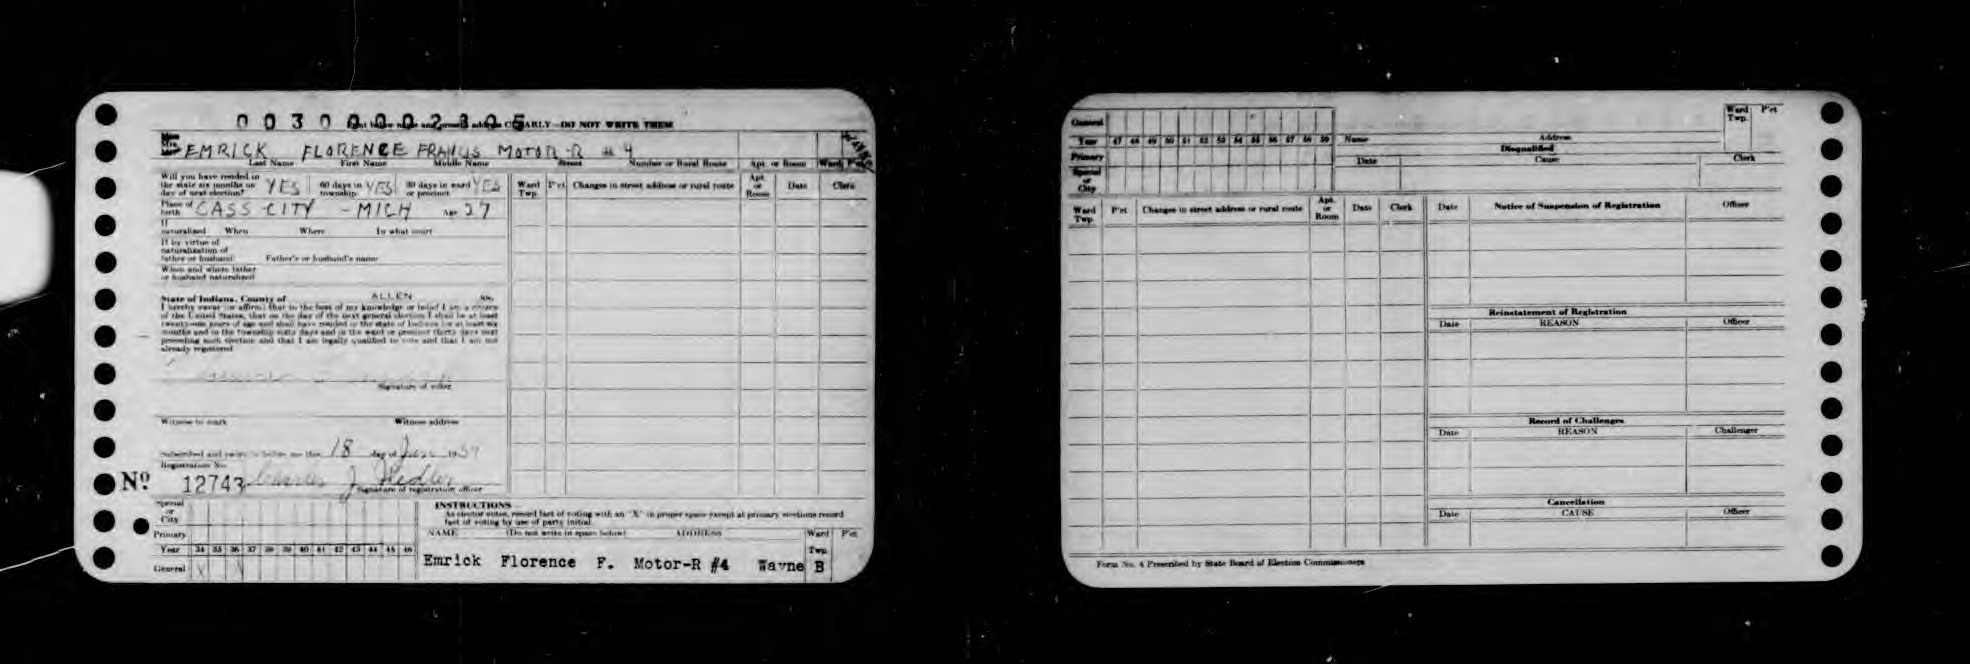 003000002305
Print below name and present address CLEARLY—DO NOT WRITE THEM
EMRICK FLORENCE FRANCIS MOTOR-R #4
Last Name First Name Middle Name Street Number or Rural Route Apt. or Room Ward P'ct
Will you have resided in the state six months on day of next election? YES 60 days in township YES 30 days in ward or precinct YES
Ward Twp. P'ct Changes in street address or rural route Apt. or Room Date Clerk
Place of birth CASS CITY - MICH Age 27
If naturalized When Where In what court
If by virtue of
naturalization of
father or husband Father's or husband's name
When and where father
or husband naturalized
State of Indiana, County of ALLEN
I hereby swear (or affirm) that to the best of my knowledge or belief I am a citizen
of the United States, that on the day of the next general election I shall be at least
twenty-one years of age and shall have resided in the state of Indiana for at least six
months and in the township sixty days and in the ward or precinct thirty days next
preceding such election and that I am legally qualified to vote and that I am not
already registered
Signature of voter
Witness to mark Witness address
Subscribed and sworn to before me this 18 day of 1934
Registration No.
Nº 12743 Charles J
Signature of registration officer
Special or City
Primary
Year 34 35 36 37 38 39 40 41 42 43 44 45 46
General X X
INSTRUCTIONS
As elector votes, record fact of voting with an "X" in proper space except at primary elections record
fact of voting by use of party initial
NAME (Do not write in space below) ADDRESS Ward Twp. P'ct
Emrick Florence F. Motor-R #4 Wayne B
General
Year 47 48 49 50 51 52 53 54 55 56 57 58 59
Primary
Special or City
Name Address Ward Twp. P'ct
Disqualified
Date Cause Clerk
Ward Twp. P'ct Changes in street address or rural route Apt. or Room Date Clerk
Date Notice of Suspension of Registration Officer
Reinstatement of Registration
Date REASON Officer
Record of Challenges
Date REASON Challenger
Cancellation
Date CAUSE Officer
Form No. 4 Presented by State Board of Election Commissioners